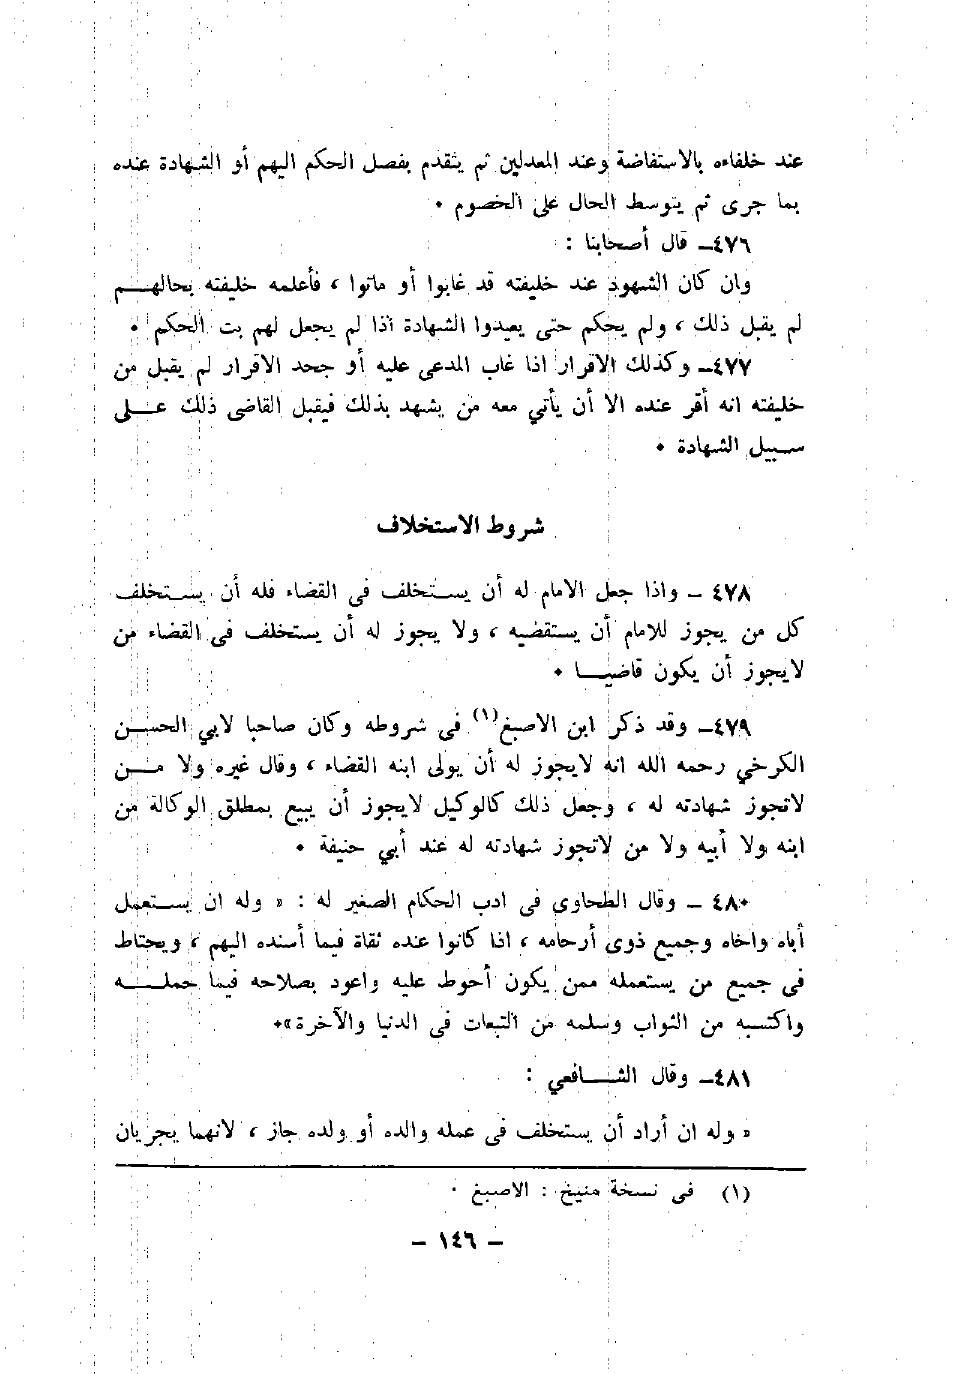 عند خلفاءه بالاستفاضة وعند المعدلين ثم يتقدم بفصل الحكم اليهم أو الشهادة عنده
بما جرى ثم يتوسط الحال على الخصوم ٠
٤٧٦ــ قال أصحابنا :
وان كان الشهود عند خليفته قد غابوا أو ماتوا ، فأعلمه خليفته بحالهــم
لم يقبل ذلك ، ولم يحكم حتى يعيدوا الشهادة اذا لم يجعل لهم بت الحكم ٠
٤٧٧ــ وكذلك الاقرار اذا غاب المدعى عليه أو جحد الاقرار لم يقبل من
خليفته انه أقر عنده الا أن يأتي معه من يشهد بذلك فيقبل القاضى ذلك علــى
سـبيل الشهادة ٠
شروط الاستخلاف
٤٧٨ ــ واذا جعل الامام له أن يســتخلف فى القضاء فله أن يســتخلف
كل من يجوز للامام أن يستقضيه ، ولا يجوز له أن يستخلف فى القضاء من
لايجوز أن يكون قاضيــا ٠
٤٧٩ــ وقد ذكر ابن الاصبغ(١) فى شروطه وكان صاحبا لابي الحســن
الكرخي رحمه الله انه لايجوز له أن يولى ابنه القضاء ، وقال غيره ولا مــن
لاتجوز شهادته له ، وجعل ذلك كالوكيل لايجوز أن يبيع بمطلق الوكالة من
ابنه ولا أبيه ولا من لاتجوز شهادته له عند أبي حنيفة ٠
٤٨٠ ــ وقال الطحاوى فى ادب الحكام الصغير له : « وله ان يســتعمل
أباه واخاه وجميع ذوى أرحامه ، اذا كانوا عنده ثقاة فيما أسنده اليهم ، ويحتاط
فى جميع من يستعمله ممن يكون أحوط عليه واعود بصلاحه فيما حملــه
واكتسبه من الثواب وسلمه من التبعات فى الدنيا والآخرة»٠
٤٨١ــ وقال الشــافعي :
« وله ان أراد أن يستخلف فى عمله والده أو ولده جاز ، لانهما يجريان
(١) فى نسخة منيخ : الاصبغ ٠
ــ ١٤٦ ــ